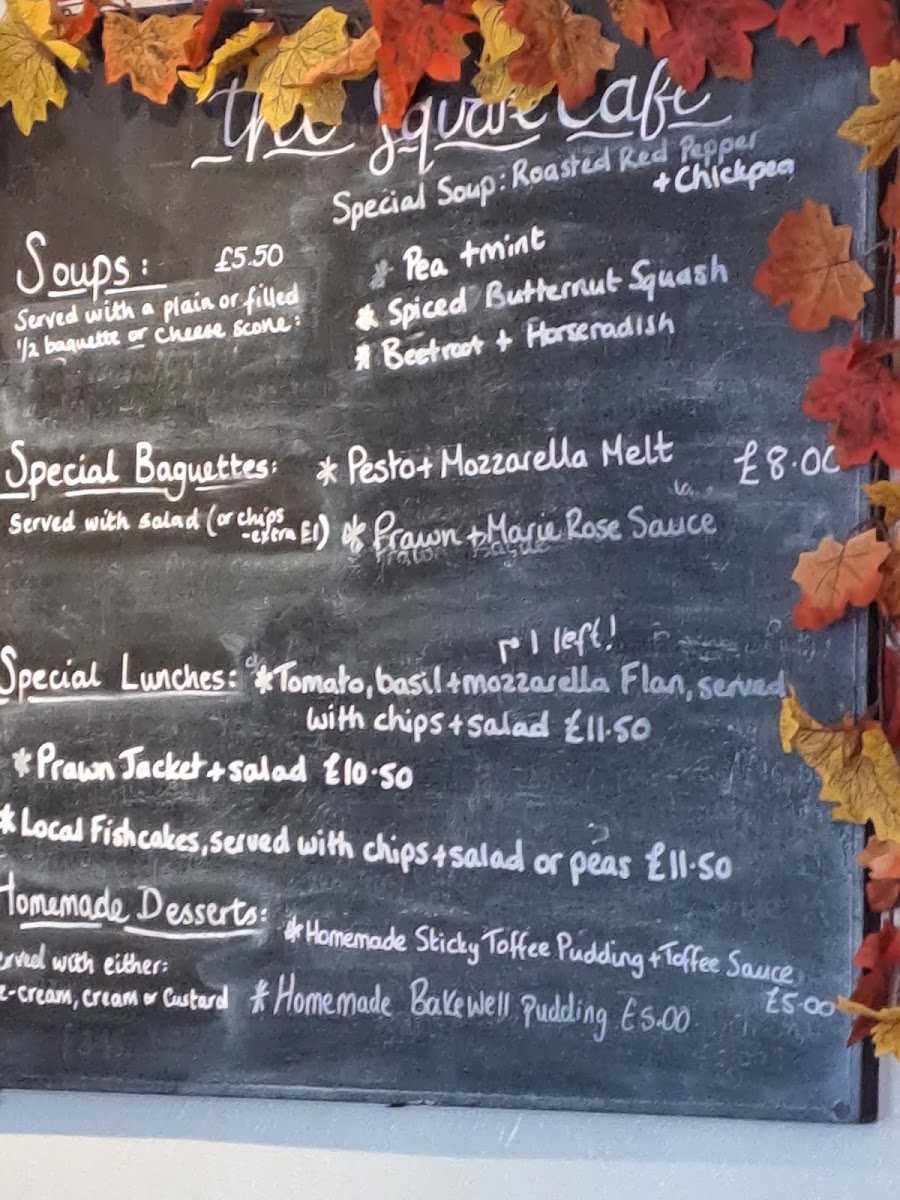 The Square Cafe
Special Soup: Roasted Red Pepper
+ Chickpea
Soups: £5.50
Served with a plain or filled
1/2 baquette or Cheese scone:
* Pea + mint
* Spiced Butternut Squash
* Beetroot + Horseradish
Special Baguettes: * Pesto + Mozzarella Melt £8.00
Served with salad (or chips
-extra £1) * Prawn + Marie Rose Sauce
1 left!
Special Lunches: * Tomato, basil + mozzarella Flan, served
with chips + salad £11.50
* Prawn Jacket + salad £10.50
* Local Fishcakes, served with chips + salad or peas £11.50
Homemade Desserts:
* Homemade Sticky Toffee Pudding + Toffee Sauce
£5.00
erved with either:
e-cream, cream or Custard
* Homemade Bakewell pudding £5.00